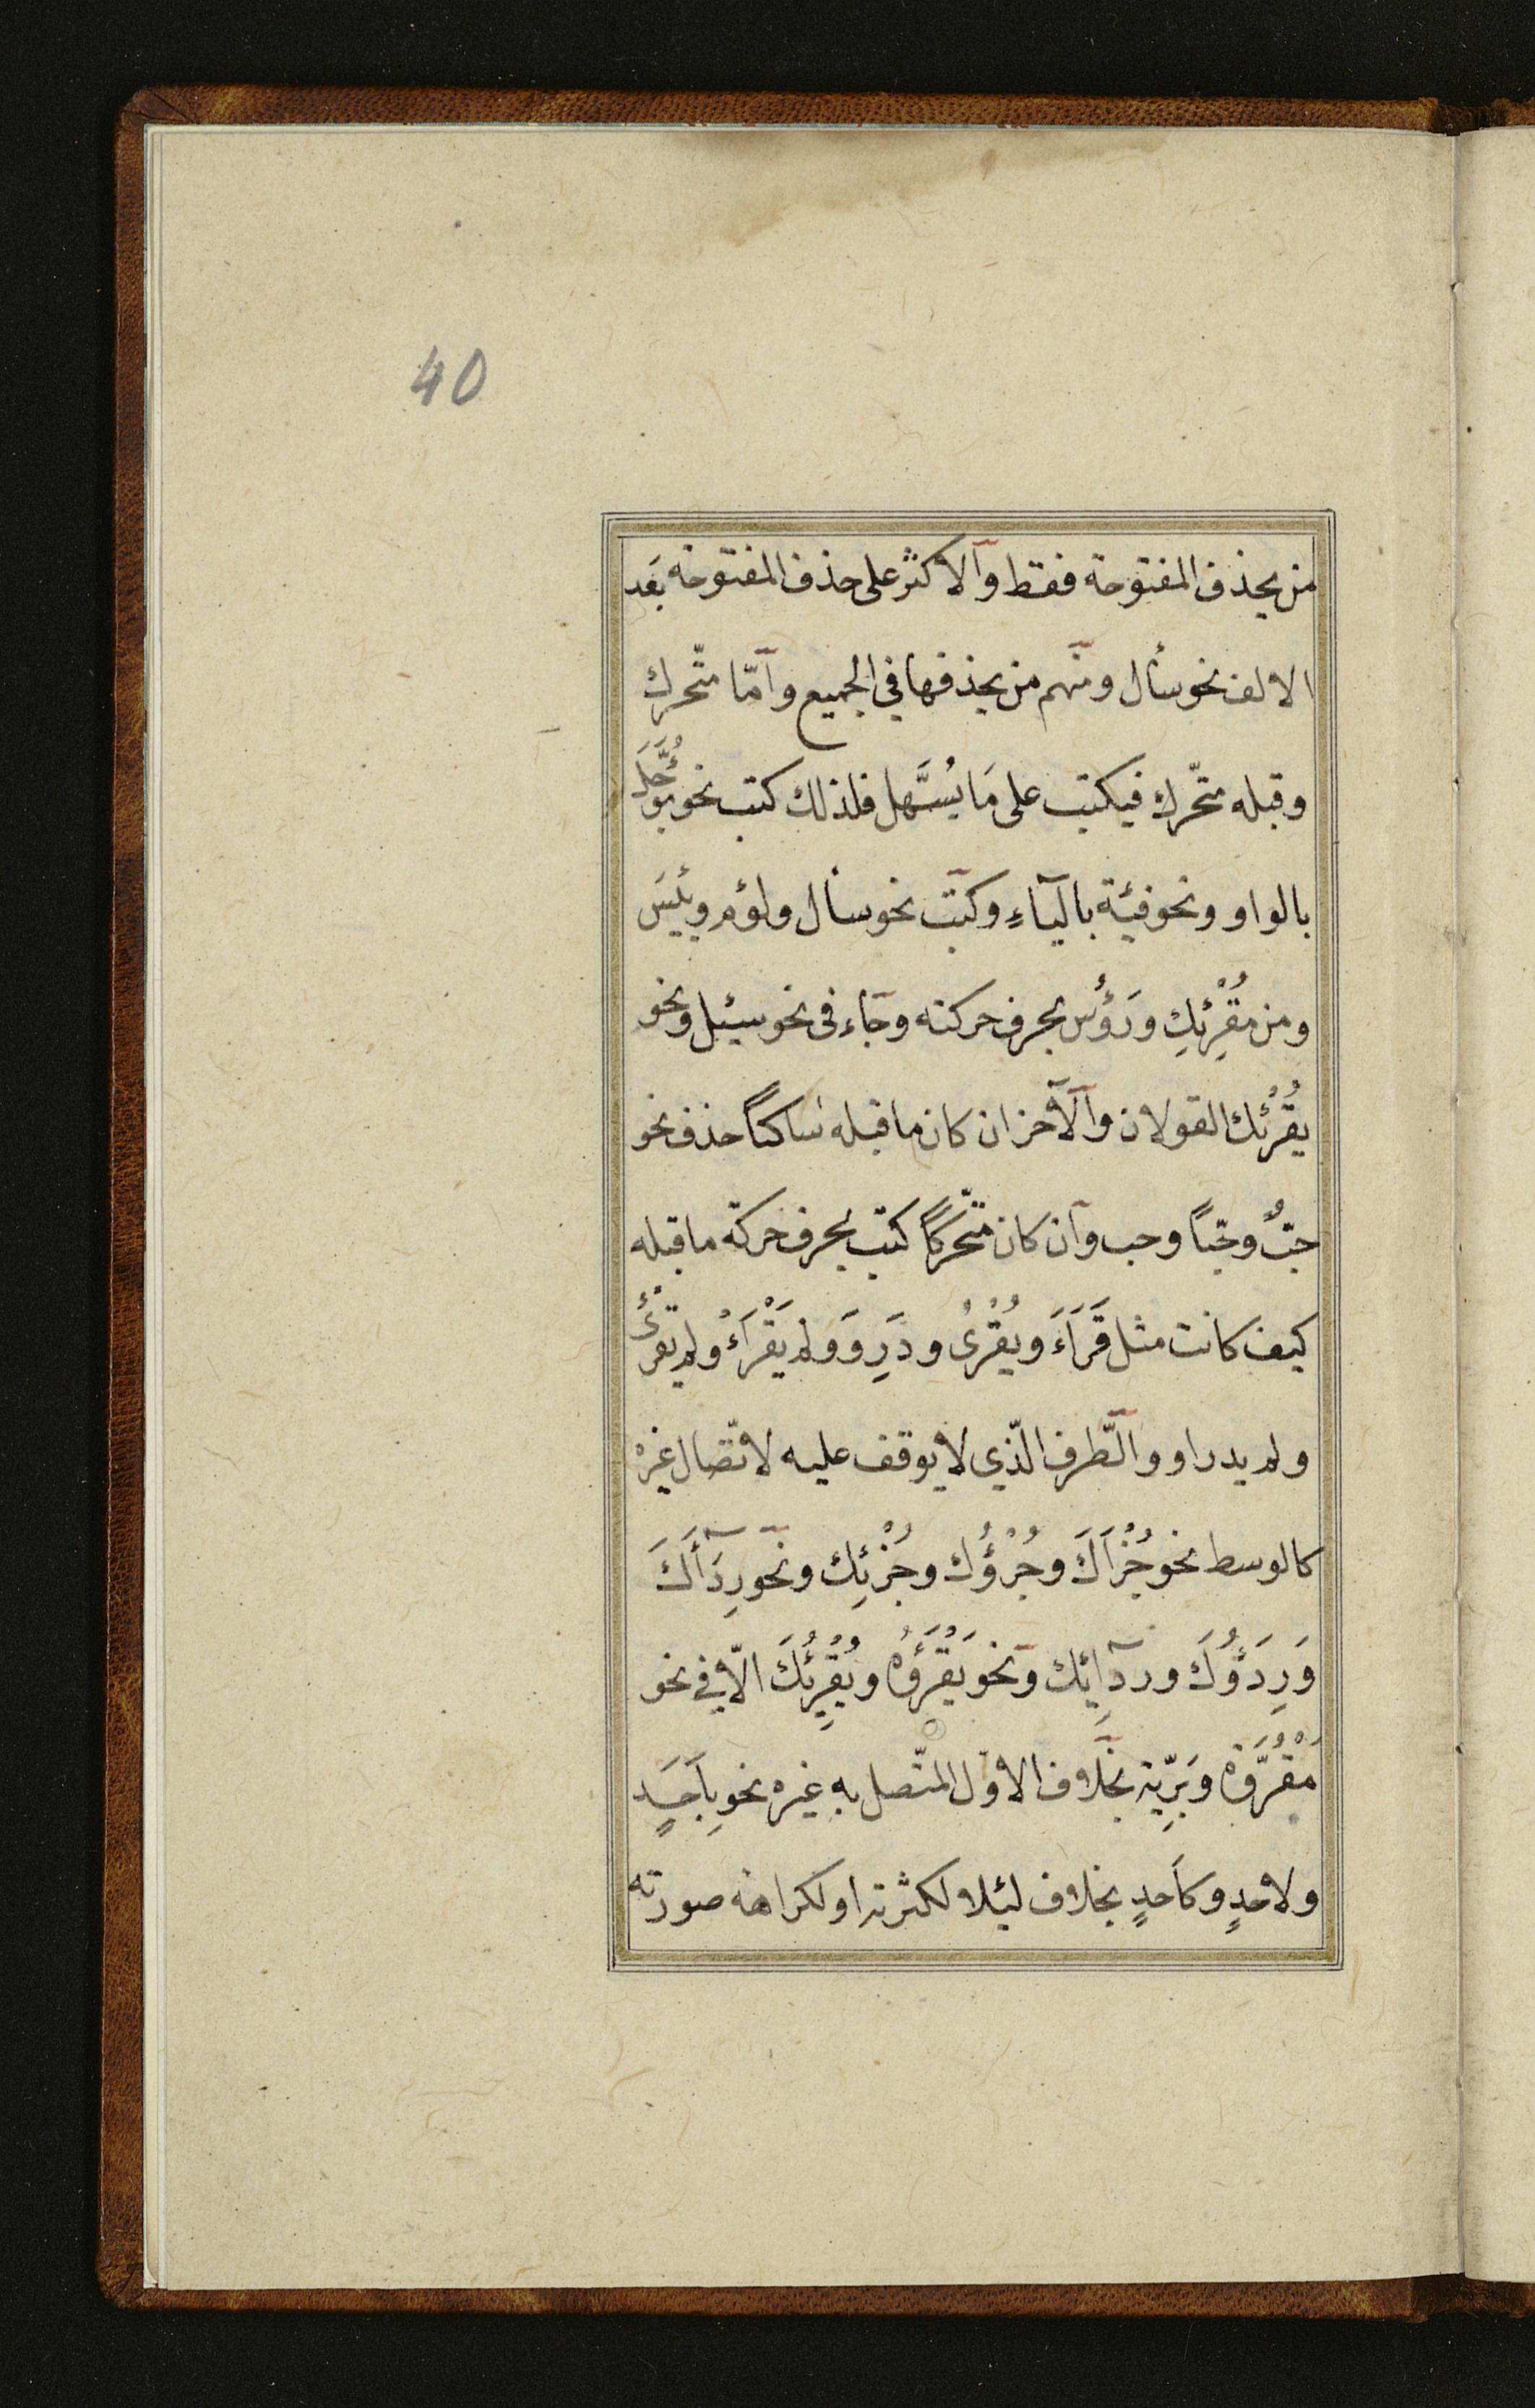 40
من يحذف المفتوحة فقط والاكثر على حذف المفتوحة بعد
الالف نحو سأل ومنهم من يحذفها في الجميع وأمّا متّحرك
وقبله متّحرك فيكتب على مَا يُسَّهل فلذلك كتب نحو مُؤَجَّل
بالواو ونحو فئة بالياءِ وكتب نحو سأل ولؤم ويئِسَ
ومن مُقْرِئِكِ ورَؤُس بحرف حركته وجاء فى نحو سئِل ونحو
يُقْرُِئُك القولان والآخر ان كان ما قبله ساكنًا حذف نحو
خبٌ وخبًا وخب وان كان متّحركًا كتب بحرف حركة ما قبله
كيف كانت مثل قَرَاءَ ويُقْرِئُ ورَدُِوَ ولم يَقْرَاءْ ولم يُقْرِئْ
ولم يردُاو والطَّرف الّذي لا يوقف عليه لاتّصال غيره
كالوسط نحو جُزْأَكَ وجُزْؤُك وجُزْئِكَ ونحو رِدَآأَكَ
وَرِدَؤُكَ وردَآئِك ونحو يَقْرَؤُهُ ويُقْرِئُكَ الّا في نحو
مَقْرُوَّة وبَرِيّة بخلاف الاوّل المتّصل به غيره نحو بِاَحَدٍ
ولاحدٍ وكاَحدٍ بخلاف لئلا لكثرته او لكراهة صورته